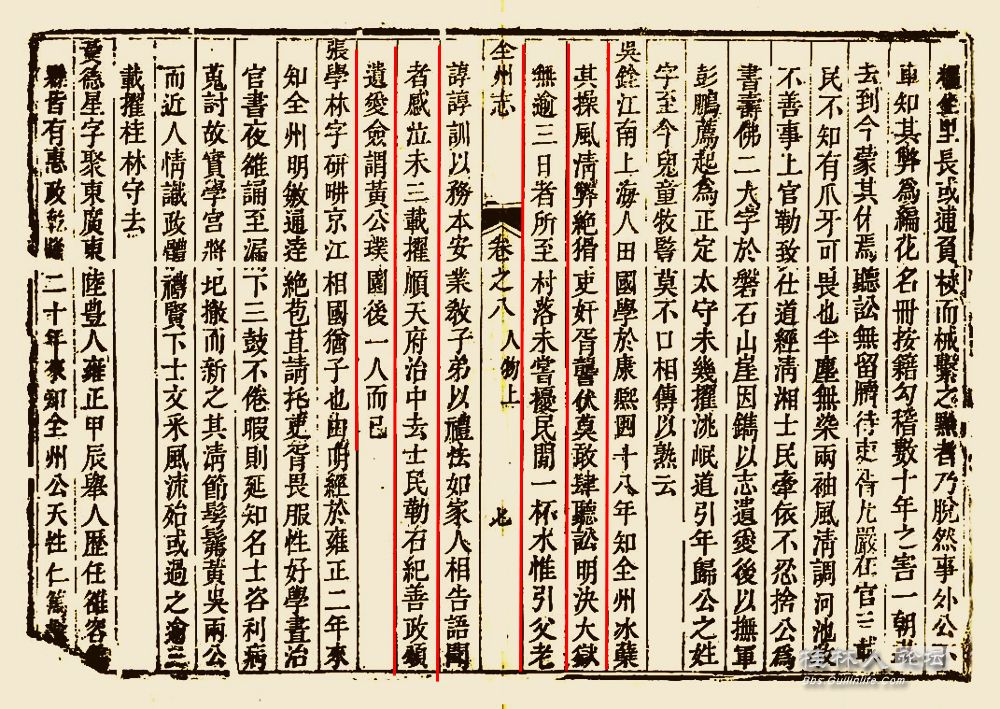 糧金里長或逋負杖而械繫之黠者乃脫然事外公下
車知其弊為編花名冊按籍勾稽數十年之害一朝
去到今蒙其休焉聽訟無留牘待吏胥尤嚴在官三載
民不知有爪牙可畏也半塵無染兩袖風清調河池
不善事上官勒致仕道經清湘士民牽依不忍捨公為
書壽佛二大字於磐石山崖因鐫以志遺愛後以撫軍
彭鵬薦起為正定太守未幾擢洮岷道引年歸公之姓
字至今兒童牧豎莫不口相傳以熟云
吳銓江南上海人田國學於康熙四十八年知全州冰蘖
其操風清弊絕猾吏奸胥讋伏莫敢肆聽訟明決大獄
無逾三日者所至村落未嘗擾民間一杯水惟引父老
全州志 卷之八 人物上
諄諄訓以務本安業教子弟以禮法如家人相告語聞
者感泣未三載擢順天府治中去士民勒石紀善政頌
遺愛僉謂黃公璞園後一人而已
張學林字研畊京江相國猶子也由明經於雍正二年來
知全州明敏通達絕苞苴請托吏胥畏服性好學晝治
官書夜雒誦至漏下三鼓不倦暇則延知名士咨利病
蒐討故實學宮將圮撤而新之其清節髣髴黃吳兩公
而近人情識政體禮賢下士文采風流殆或過之逾三
載擢桂林守去
黃德星字聚東廣東陸豐人雍正甲辰舉人歷任雒容
縣皆有惠政乾隆二十年來知全州公天性仁篤
桂林人论坛
Bbs.Guilinlife.Com